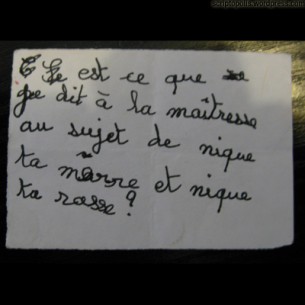 scriptopolis.wordpress.com
est ce que
je dit à la maîtresse
au sujet de nique
ta marre et nique
ta rasse?